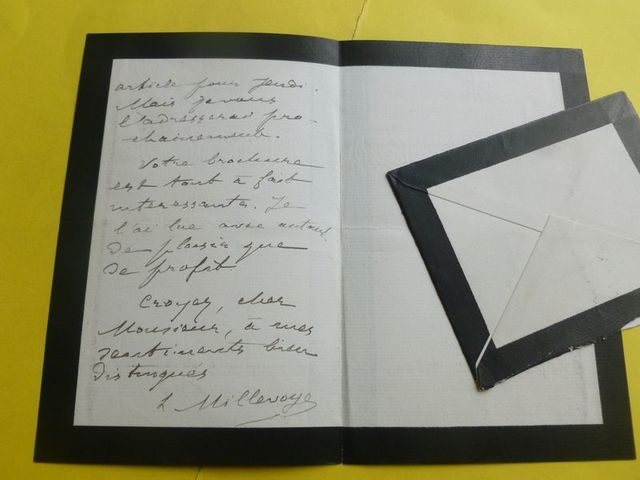 article pour Jeudi.
Mais je vous
l'adresserai pro-
chainement.
Votre brochure
est tout à fait
intéressante. Je
l'ai lue avec autant
de plaisir que
de profit
Croyez, cher
Monsieur, à mes
sentiments bien
distingués
L Millevoye